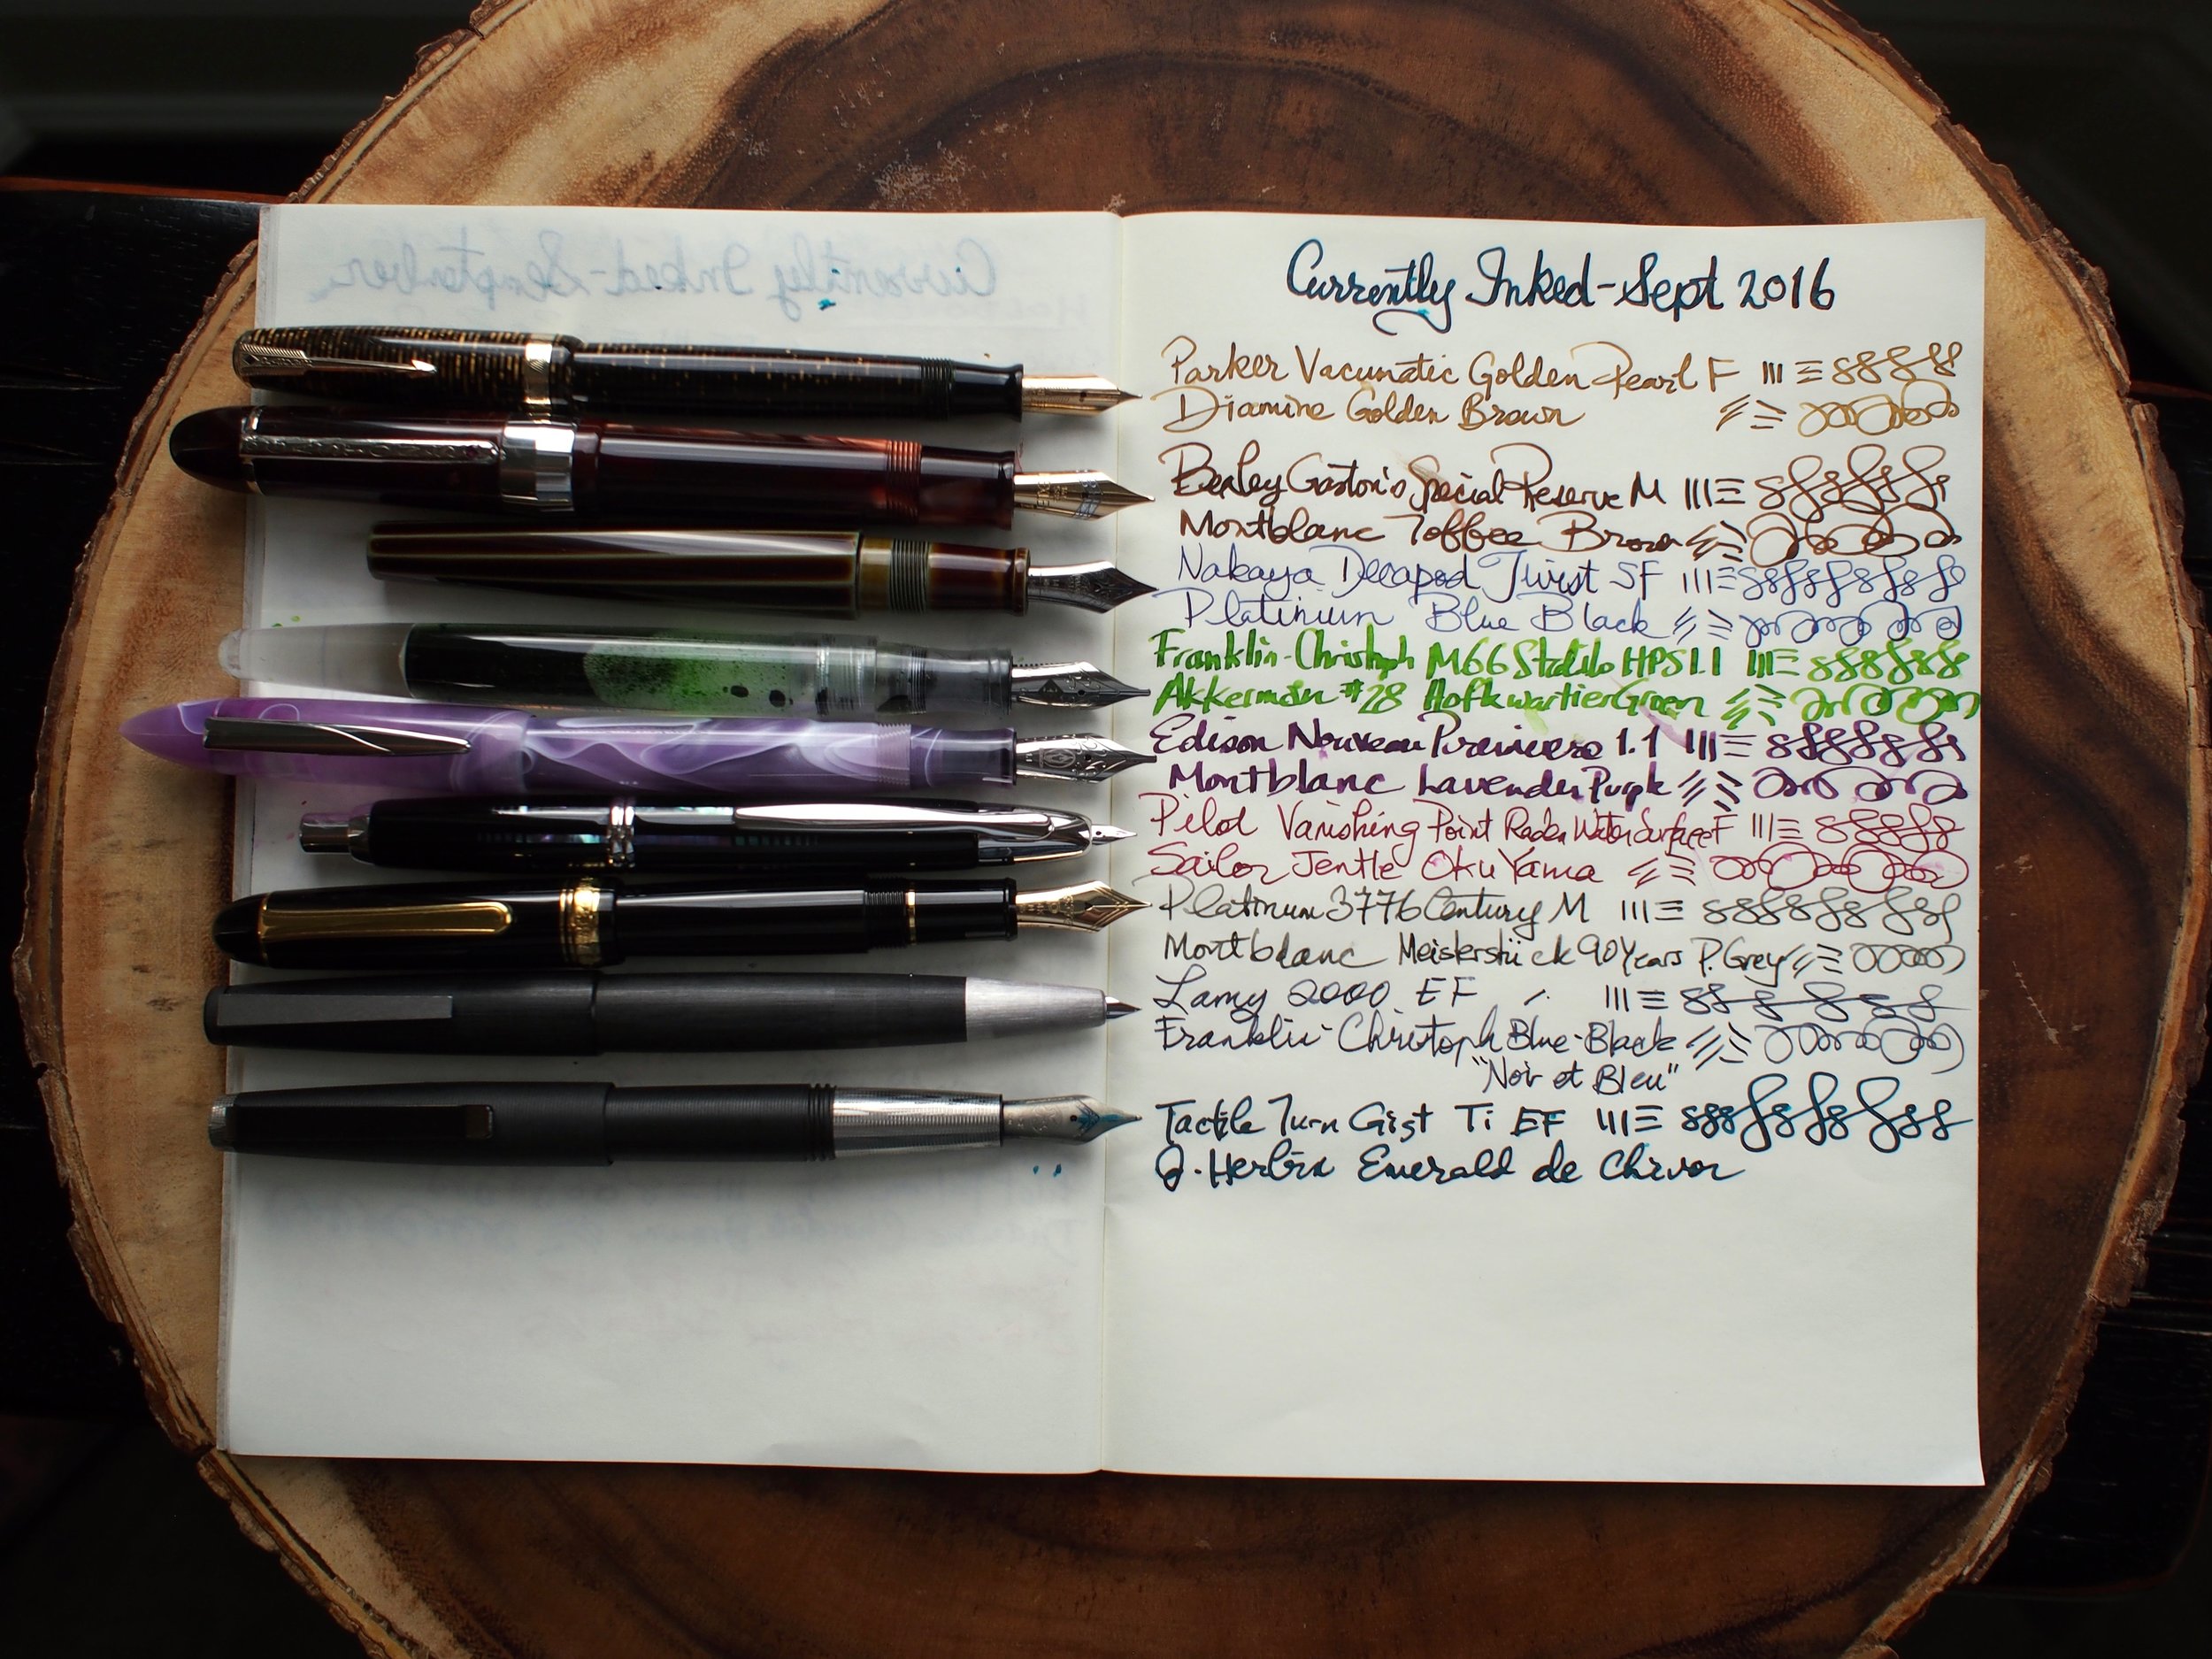 Currently Inked - Septembver
Currently Inked - Sept 2016
Parker Vacumatic Golden Pearl F
Diamine Golden Brown
Bexley Gaston's Special Reserve M
Montblanc Toffee Brown
Nakaya Decapod Twist SF
Platinium Blue Black
Franklin-Christoph M66 Stabilo HPS 1.1
Akkerman #28 HofkwartierGroen
Edison Nouveau Premiere 1.1
Montblanc Lavender Purple
Pilot Vanishing Point Raden Water Surface F
Sailor Jentle Oku Yama
Platinum 3776 Century M
Montblanc Meisterstück 90 Years P. Grey
Lamy 2000 EF
Franklin-Christoph Blue-Black
"Noir et Bleu"
Tactile Turn Gist Ti EF
J. Herbin Emerald de Chivor